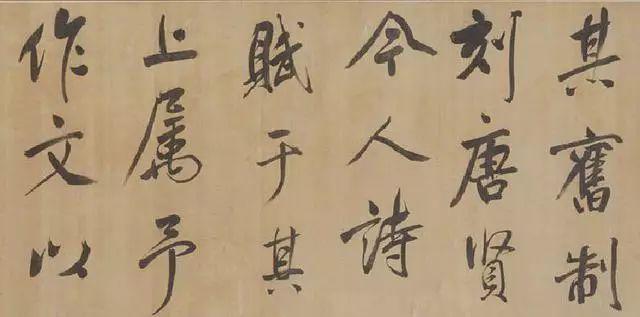 其舊制
刻唐賢
今人詩
賦于其
上属予
作文以